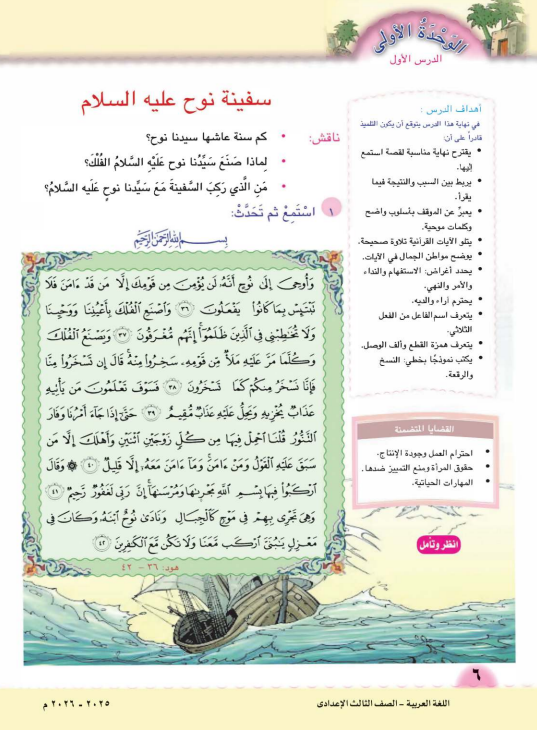 الوَحْدَةُ الأولى
الدرس الأول
سفينة نوح عليه السلام
ناقش:
• كم سنة عاشها سيدنا نوح؟
• لِماذا صَنَعَ سَيِّدُنا نوح عَلَيْهِ السَّلامُ الفُلْكَ؟
• مَنِ الَّذي رَكِبَ السَّفينةَ مَعَ سَيِّدِنا نوحٍ عَلَيه السَّلامُ؟
١ اسْتَمِعْ ثم تَحَدَّثْ:
بسم الله الرحمن الرحيم
وَأُوحِيَ إِلَىٰ نُوحٍ أَنَّهُۥ لَن يُؤْمِنَ مِن قَوْمِكَ إِلَّا مَن قَدْ ءَامَنَ فَلَا
تَبْتَئِسْ بِمَا كَانُوا۟ يَفْعَلُونَ ٣٦ وَٱصْنَعِ ٱلْفُلْكَ بِأَعْيُنِنَا وَوَحْيِنَا
وَلَا تُخَٰطِبْنِى فِى ٱلَّذِينَ ظَلَمُوٓا۟ إِنَّهُم مُّغْرَقُونَ ٣٧ وَيَصْنَعُ ٱلْفُلْكَ
وَكُلَّمَا مَرَّ عَلَيْهِ مَلَأٌ مِّن قَوْمِهِۦ سَخِرُوا۟ مِنْهُ قَالَ إِن تَسْخَرُوا۟ مِنَّا
فَإِنَّا نَسْخَرُ مِنكُمْ كَمَا تَسْخَرُونَ ٣٨ فَسَوْفَ تَعْلَمُونَ مَن يَأْتِيهِ
عَذَابٌ يُخْزِيهِ وَيَحِلُّ عَلَيْهِ عَذَابٌ مُّقِيمٌ ٣٩ حَتَّىٰٓ إِذَا جَآءَ أَمْرُنَا وَفَارَ
ٱلتَّنُّورُ قُلْنَا ٱحْمِلْ فِيهَا مِن كُلٍّ زَوْجَيْنِ ٱثْنَيْنِ وَأَهْلَكَ إِلَّا مَن
سَبَقَ عَلَيْهِ ٱلْقَوْلُ وَمَنْ ءَامَنَ وَمَآ ءَامَنَ مَعَهُۥٓ إِلَّا قَلِيلٌ ٤٠ ۞ وَقَالَ
ٱرْكَبُوا۟ فِيهَا بِسْمِ ٱللَّهِ مَجْر۪ىٰهَا وَمُرْسَىٰهَآ إِنَّ رَبِّى لَغَفُورٌ رَّحِيمٌ ٤١
وَهِىَ تَجْرِى بِهِمْ فِى مَوْجٍ كَٱلْجِبَالِ وَنَادَىٰ نُوحٌ ٱبْنَهُۥ وَكَانَ فِى
مَعْزِلٍ يَٰبُنَىَّ ٱرْكَب مَّعَنَا وَلَا تَكُن مَّعَ ٱلْكَٰفِرِينَ ٤٢
هود: ٣٦ - ٤٢
أهداف الدرس :
في نهاية هذا الدرس يتوقع أن يكون التلميذ
قادراً على أن:
• يقترح نهاية مناسبة لقصة استمع
إليها.
• يربط بين السبب والنتيجة فيما
يقرأ.
• يعبرَّ عن الموقف بأسلوب واضح
وكلمات موحية.
• يتلو الآيات القرآنية تلاوة صحيحة.
• يوضح مواطن الجمال في الآيات.
• يحدد أغراض: الاستفهام والنداء
والأمر والنهي.
• يحترم آراء والديه.
• يتعرف اسم الفاعل من الفعل
الثلاثي.
• يتعرف همزة القطع وألف الوصل.
• يكتب نموذجًا بخطي: النسخ
والرقعة.
القضايا المتضمنة
• احترام العمل وجودة الإنتاج.
• حقوق المرأة ومنع التمييز ضدها.
• المهارات الحياتية.
انظر وتأمل
٦
اللغة العربية - الصف الثالث الإعدادى
٢٠٢٥ - ٢٠٢٦ م